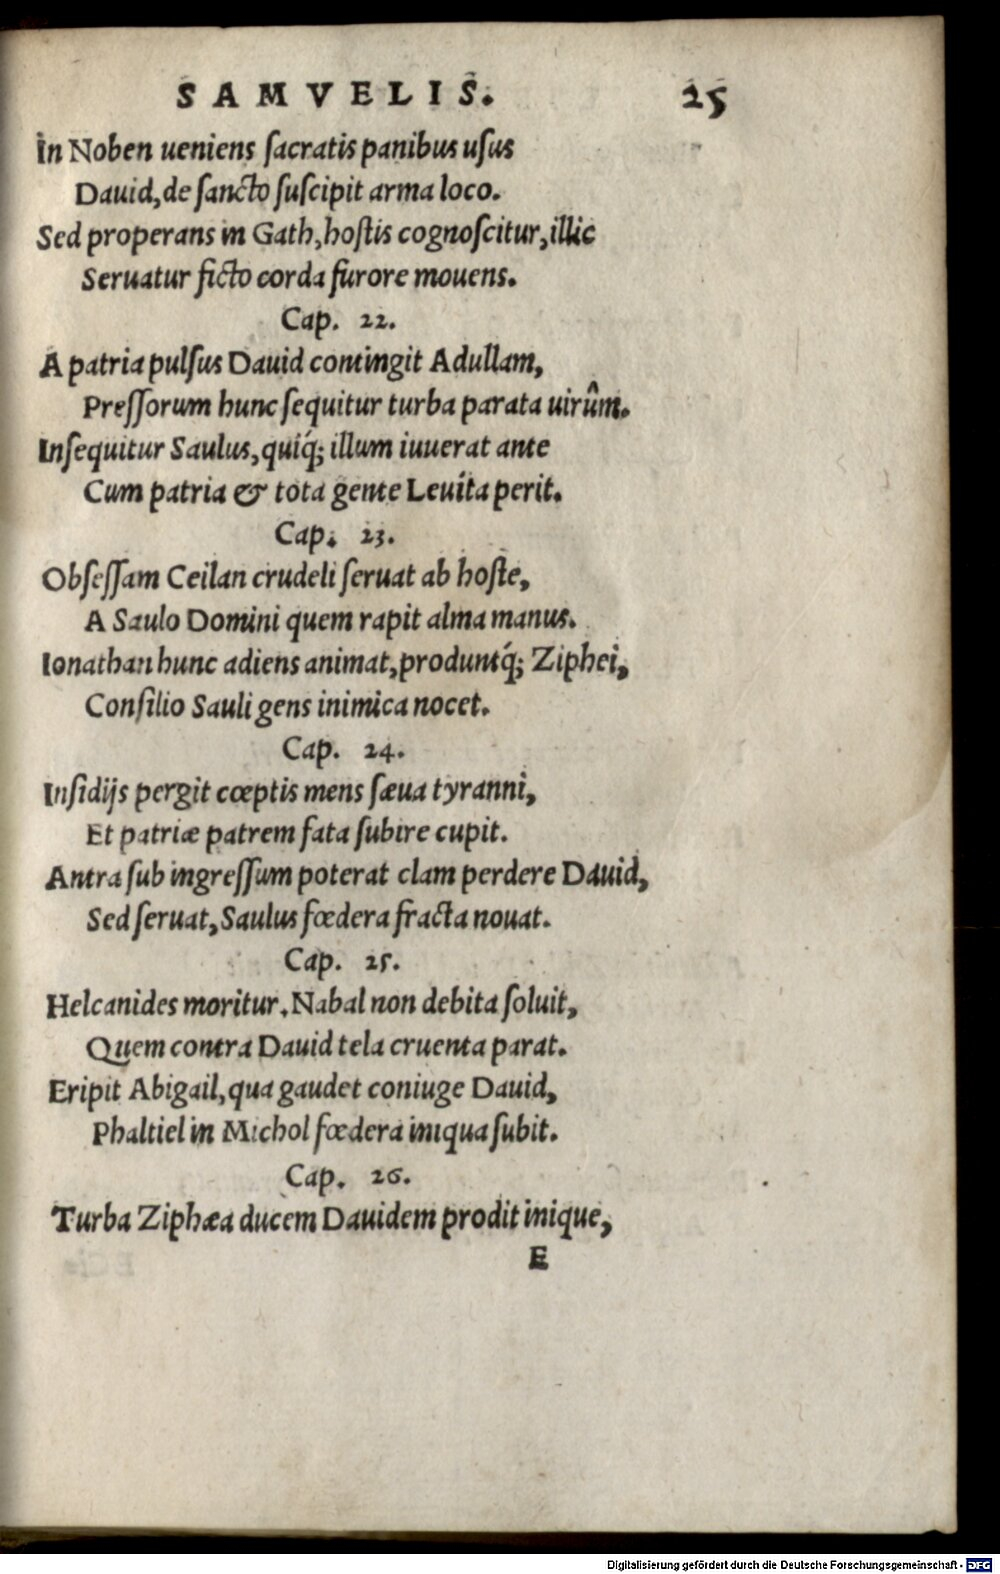 SAMVELIS. 25
In Noben ueniens ſacratis panibus uſus
Dauid, de ſancto ſuſcipit arma loco.
Sed properans in Gath, hoſtis cognoſcitur, illic
Seruatur ficto corda furore mouens.
Cap. 22.
A patria pulſus Dauid contingit Adullam,
Preſſorum hunc ſequitur turba parata uirûm.
Inſequitur Saulus, quiq́; illum iuuerat ante
Cum patria & tota gente Leuíta perit.
Cap. 23.
Obſeſſam Ceilan crudeli ſeruat ab hoſte,
A Saulo Domini quem rapit alma manus.
Ionathan hunc adiens animat, produntq́; Ziphei,
Conſilio Sauli gens inimica nocet.
Cap. 24.
Inſidijs pergit cœptis mens ſæua tyranni,
Et patriæ patrem fata ſubire cupit.
Antra ſub ingreſſum poterat clam perdere Dauid,
Sed ſeruat, Saulus fœdera fracta nouat.
Cap. 25.
Helcanides moritur. Nabal non debita ſoluit,
Quem contra Dauid tela cruenta parat.
Eripit Abigail, qua gaudet coniuge Dauid,
Phaltiel in Michol fœdera iniqua ſubit.
Cap. 26.
Turba Ziphæa ducem Dauidem prodit inique,
E
Digitalisierung gefördert durch die Deutsche Forschungsgemeinschaft - DFG